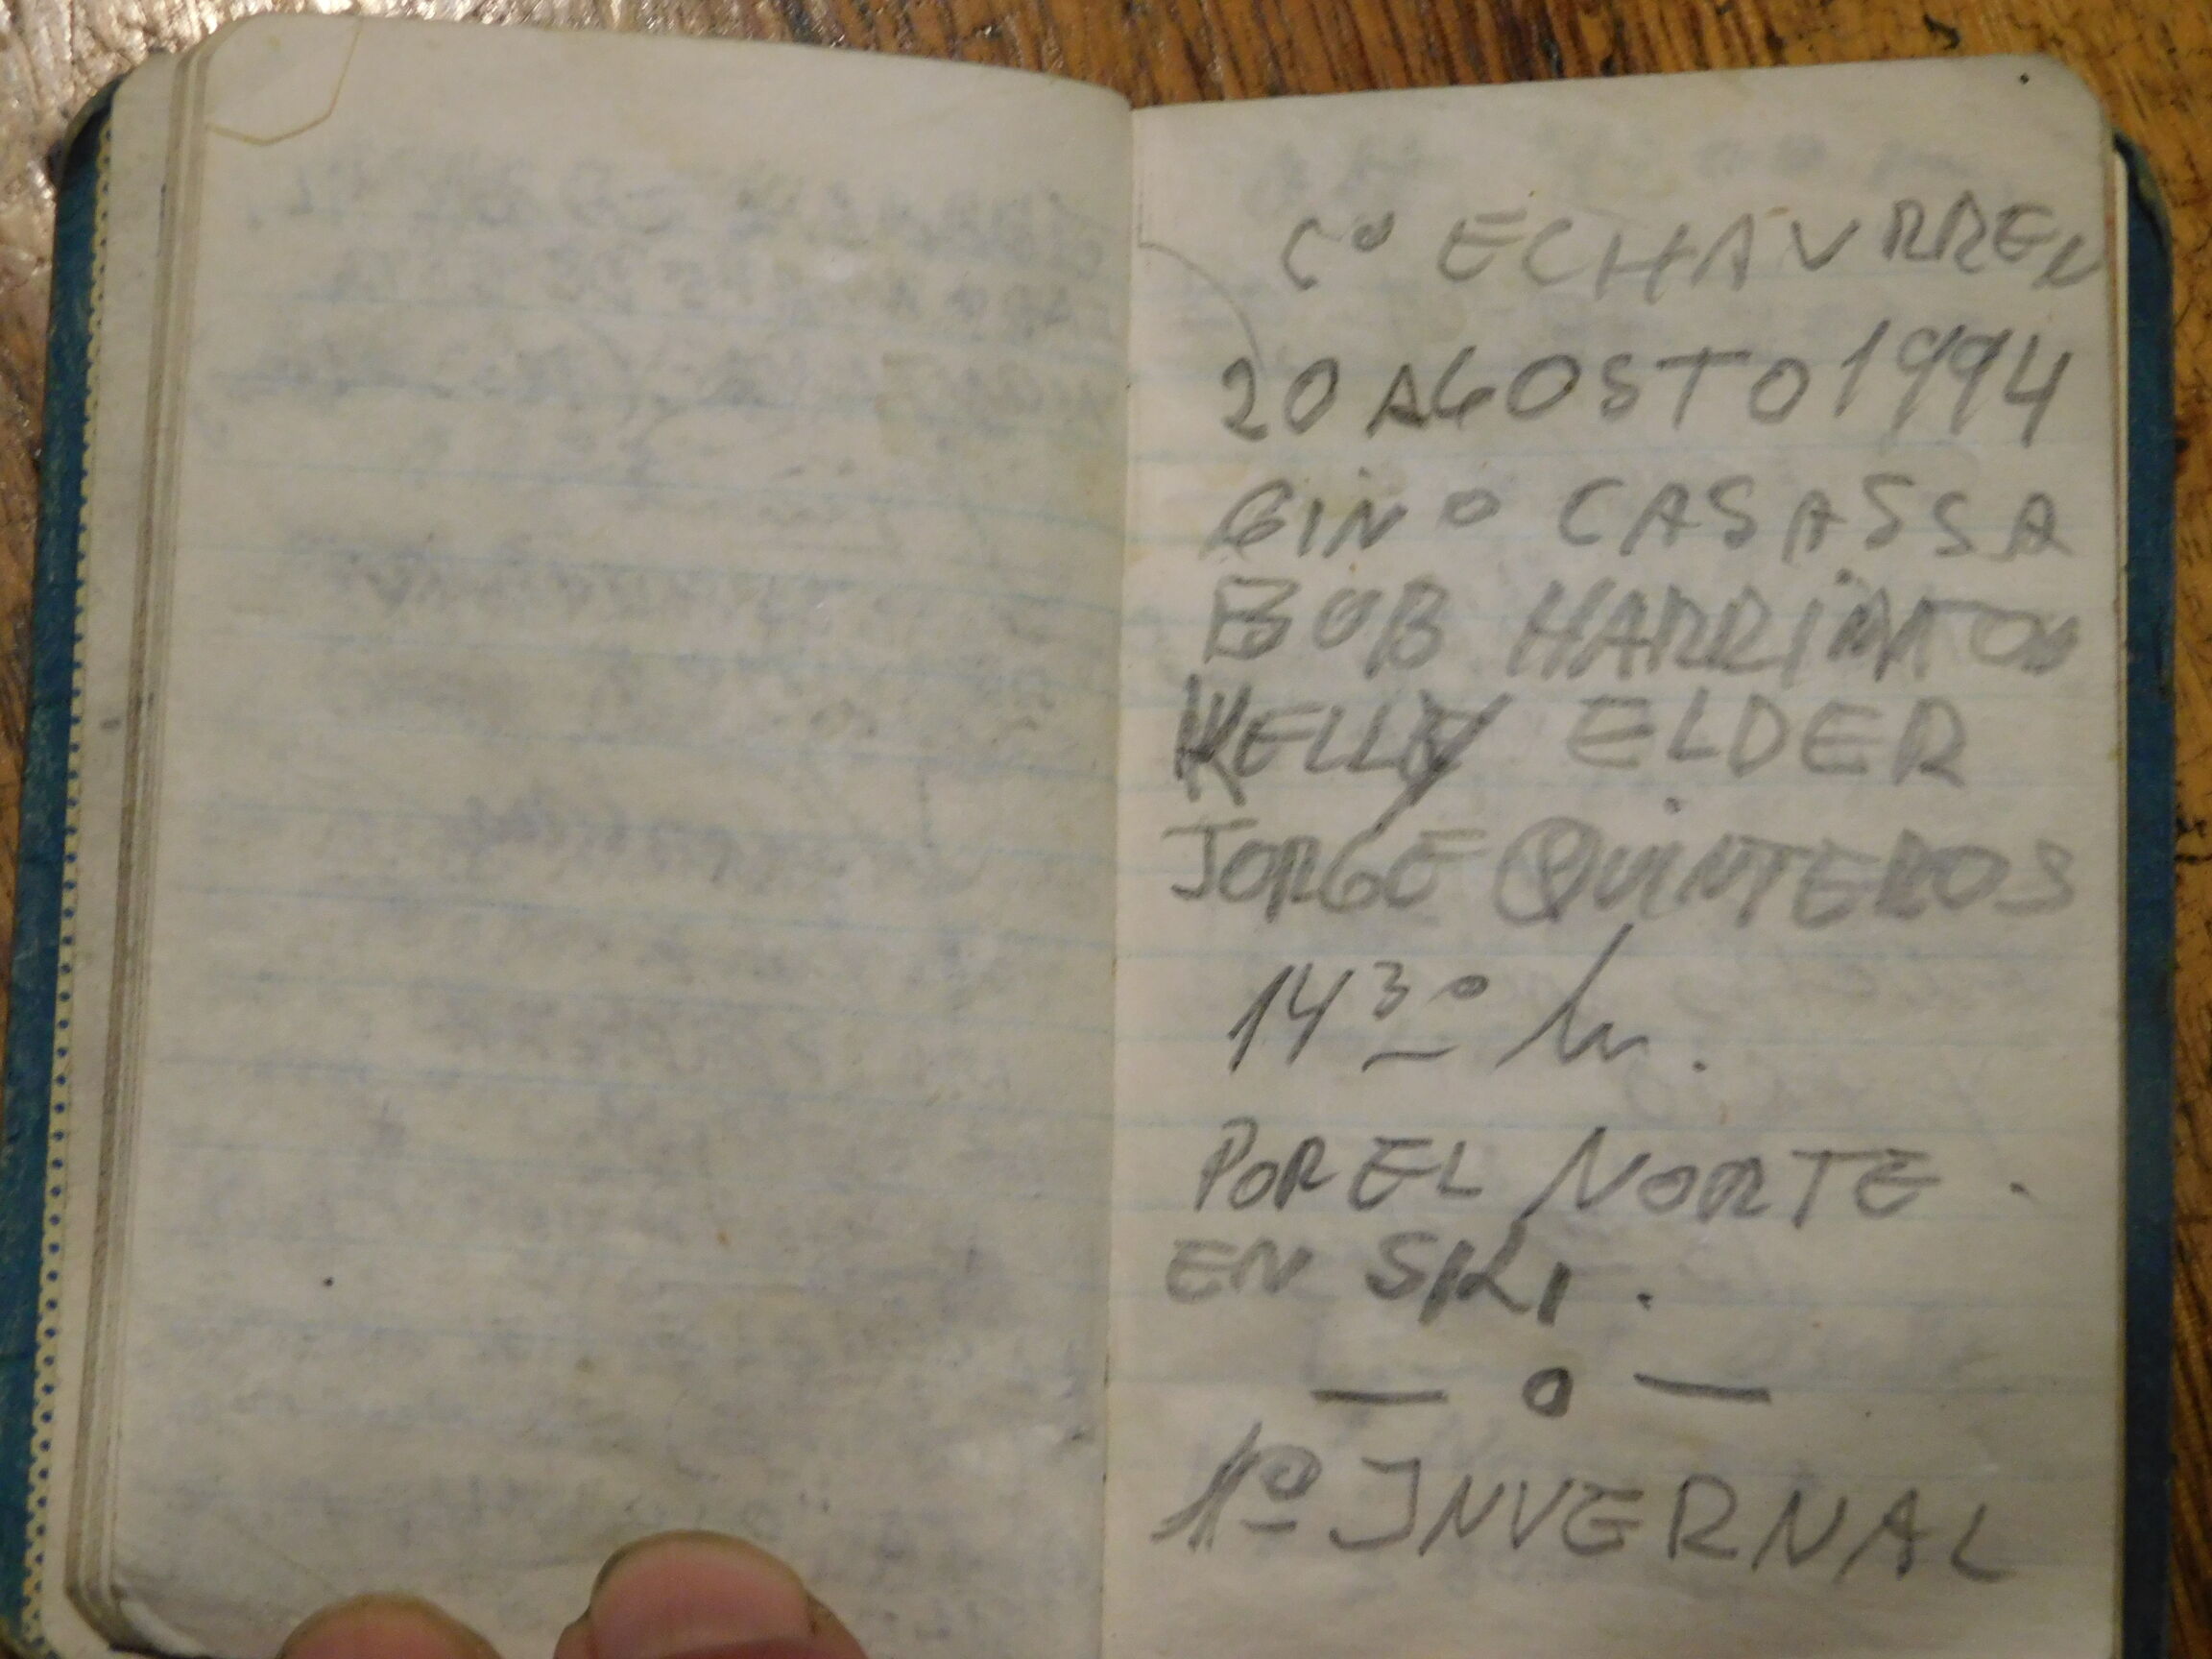 Cº ECHAVRREN
20 AGOSTO 1994
GINO CASASSA
BOB
KELLY ELDER
JORGE QUINTEROS
14 30 hr.
POR EL NORTE.
EN SKI.
— o —
1º INVERNAL